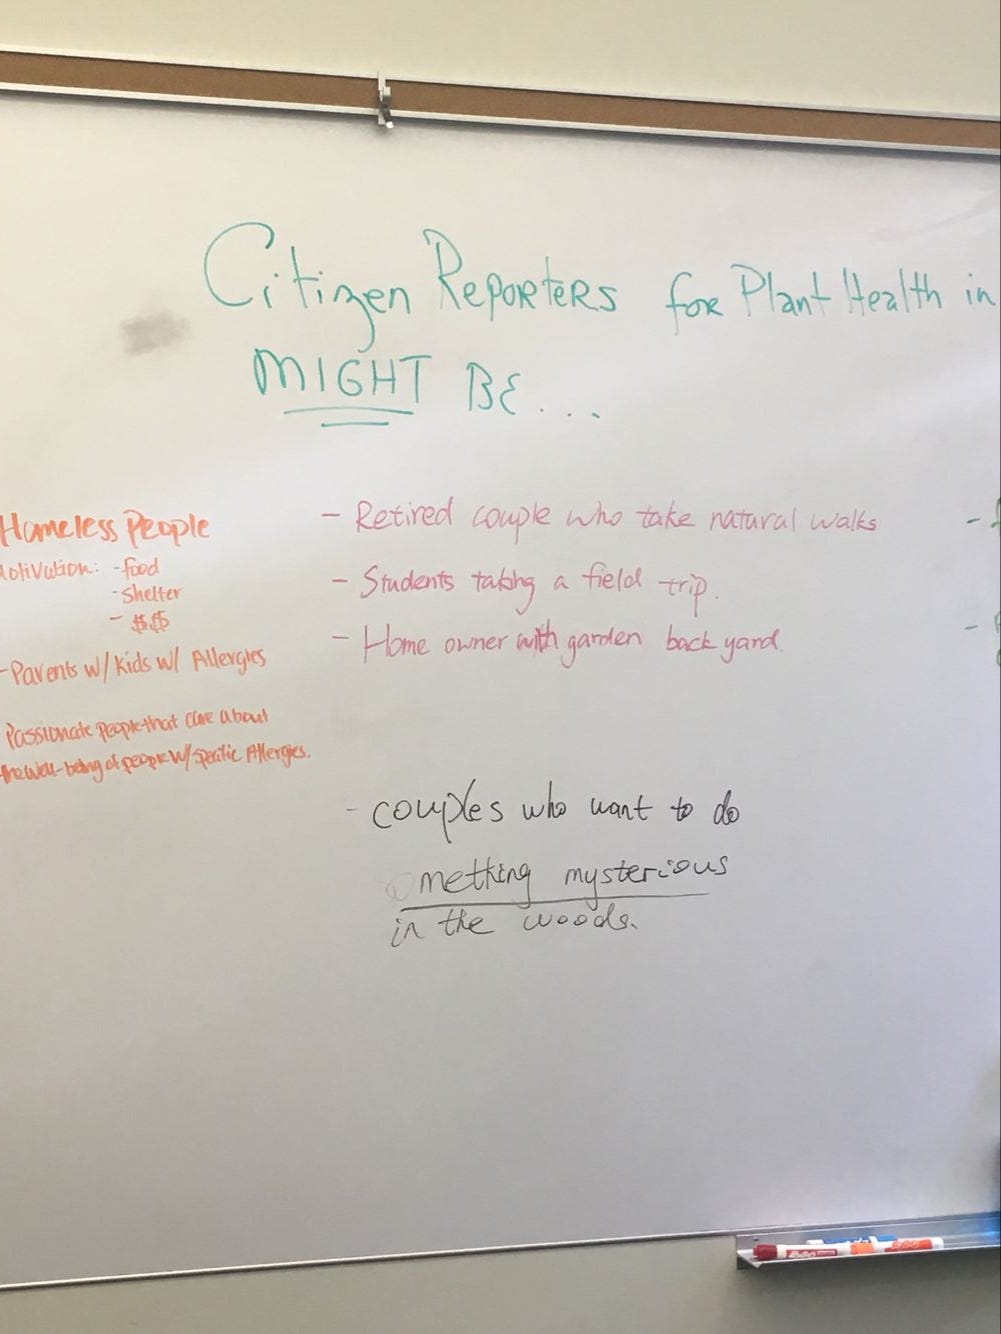 Citizen Reporters for Plant Health in
MIGHT BE...
Homeless People
Motivation: - food
- Shelter
- $$
- Parents w/ Kids w/ Allergies
Passionate People that care about
the well-being of people w/ Specific Allergies.
- Retired couple who take natural walks
- Students taking a field trip.
- Home owner with garden back yard.
- couples who want to do
omething mysterious
in the woods.
EXPO